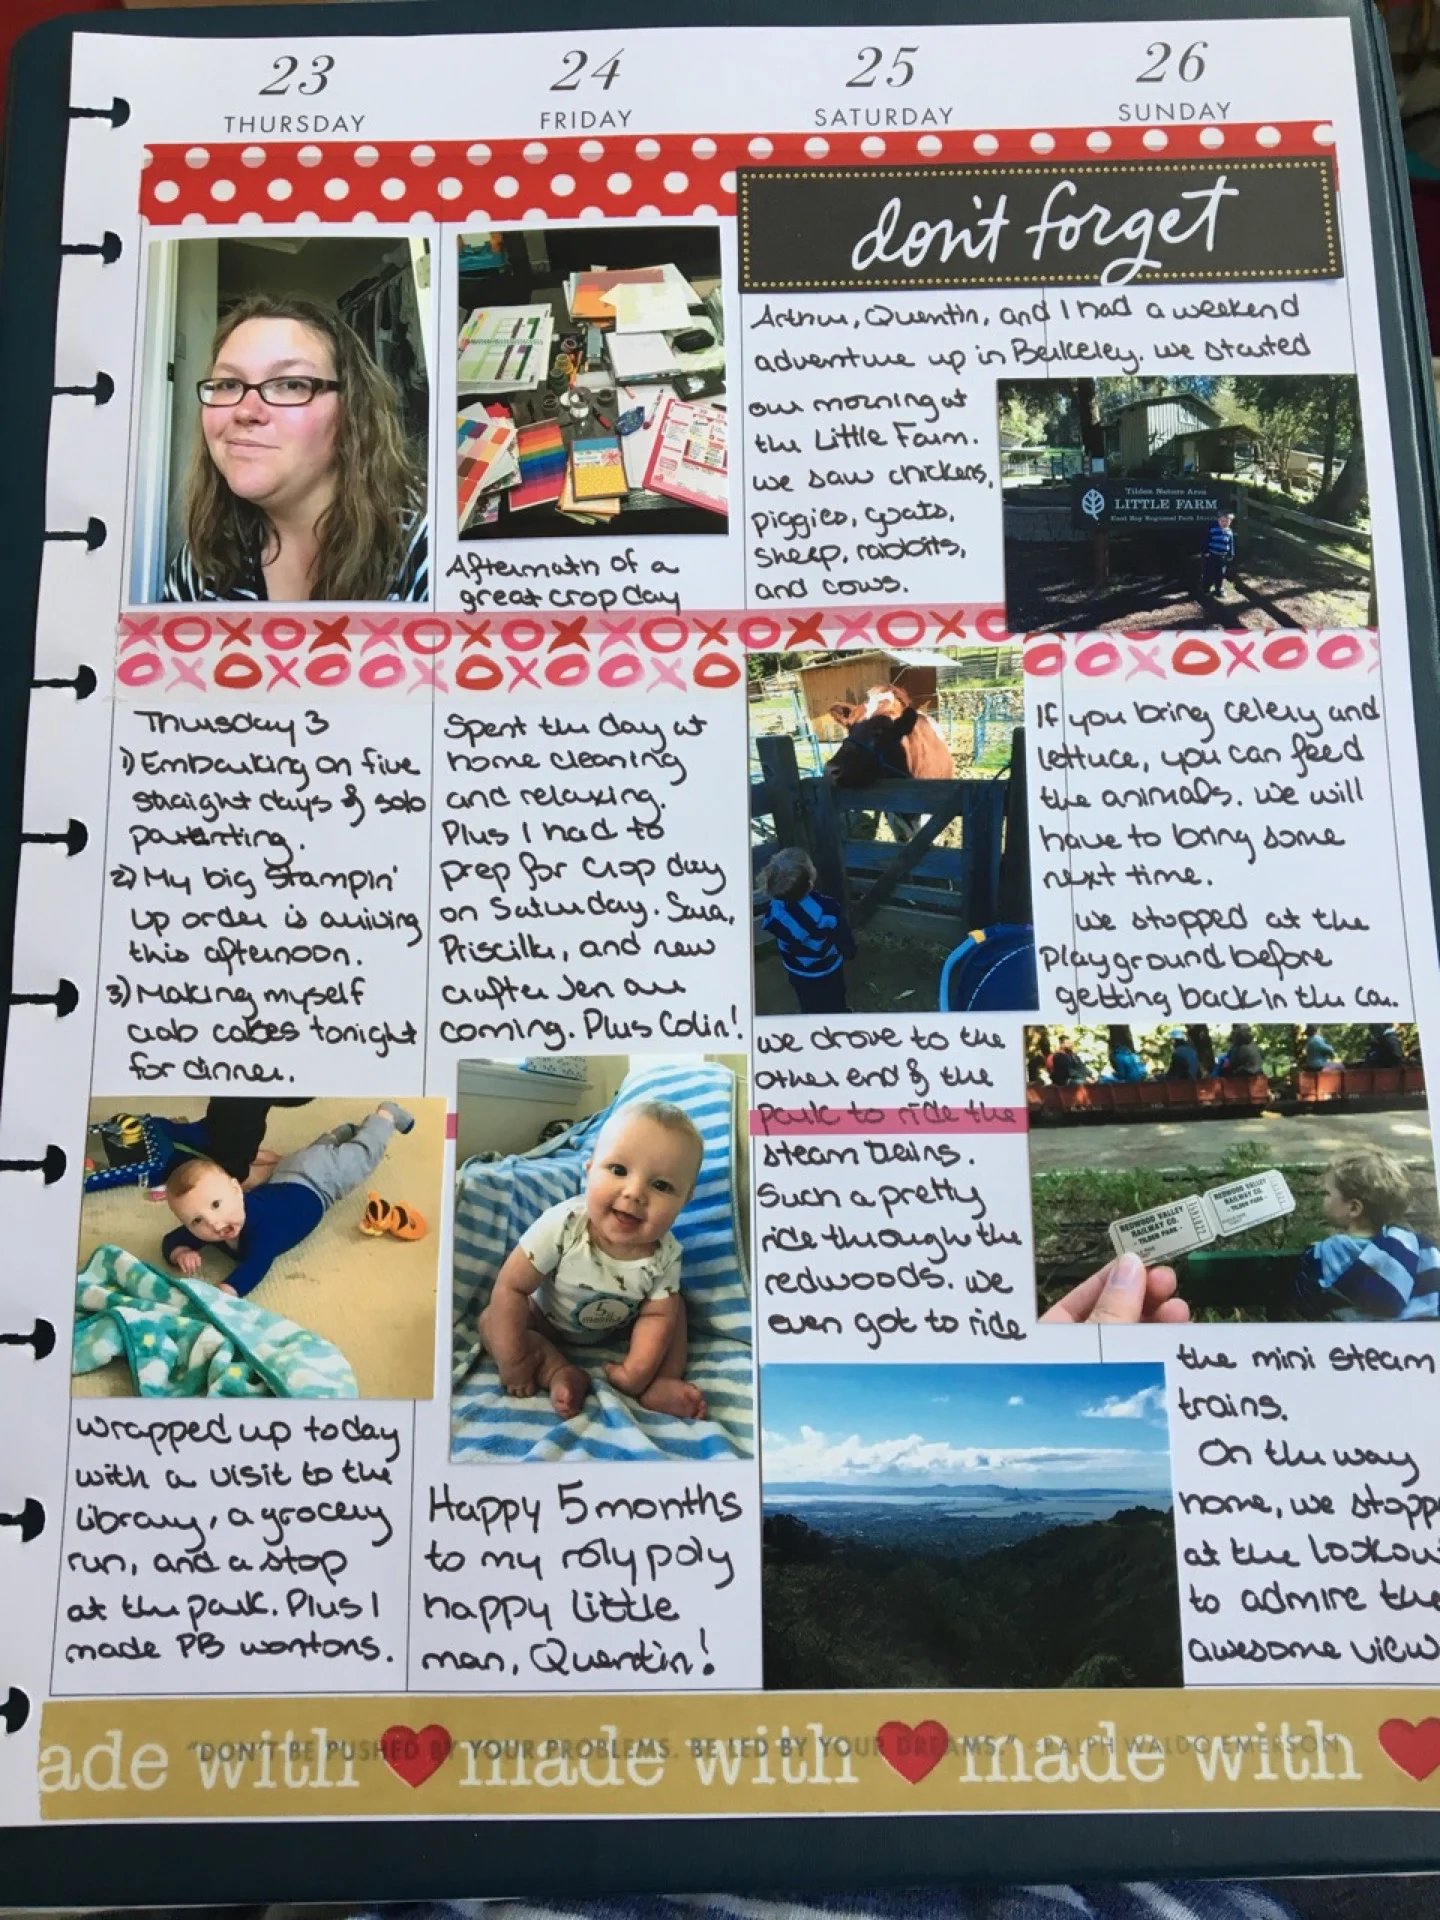 23
THURSDAY
24
FRIDAY
25
SATURDAY
26
SUNDAY
don't forget
Aftermath of a
great crop day
Thursday 3
1) Embarking on five
straight days of solo
parenting.
2) My big Stampin'
Up order is arriving
this afternoon.
3) Making myself
crab cakes tonight
for dinner.
wrapped up today
with a visit to the
library, a grocery
run, and a stop
at the park. Plus I
made PB wontons.
Spent the day at
home cleaning
and relaxing.
Plus I had to
prep for crop day
on Saturday. Sara,
Priscilla, and new
crafter Jen are
coming. Plus Colin!
5
months
Happy 5 months
to my roly poly
happy little
man, Quentin!
Arthur, Quentin, and I had a weekend
adventure up in Berkeley. We started
our morning at
the Little Farm.
we saw chickens,
piggies, goats,
sheep, rabbits,
and cows.
Tilden Nature Area
LITTLE FARM
East Bay Regional Park District
If you bring celery and
lettuce, you can feed
the animals. We will
have to bring some
next time.
We stopped at the
playground before
getting back in the car.
we drove to the
other end of the
park to ride the
steam trains.
Such a pretty
ride through the
redwoods. We
even got to ride
REDWOOD VALLEY
RAILWAY CO.
- TILDEN PARK -
REDWOOD VALLEY
RAILWAY CO.
- TILDEN PARK -
the mini steam
trains.
On the way
home, we stopp
at the lookou
to admire the
awesome view
"DON'T BE PUSHED BY YOUR PROBLEMS. BE LED BY YOUR DREAMS." - RALPH WALDO EMERSON
ade with made with made with